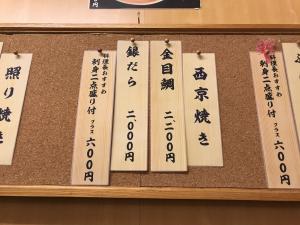 西京焼き
金目鯛 二、二〇〇円
銀だら 二、〇〇〇円
料理長おすすめ
刺身二点盛り付
プラス 六〇〇円
照り焼き
料理長おすすめ
刺身二点盛り付
プラス 六〇〇円